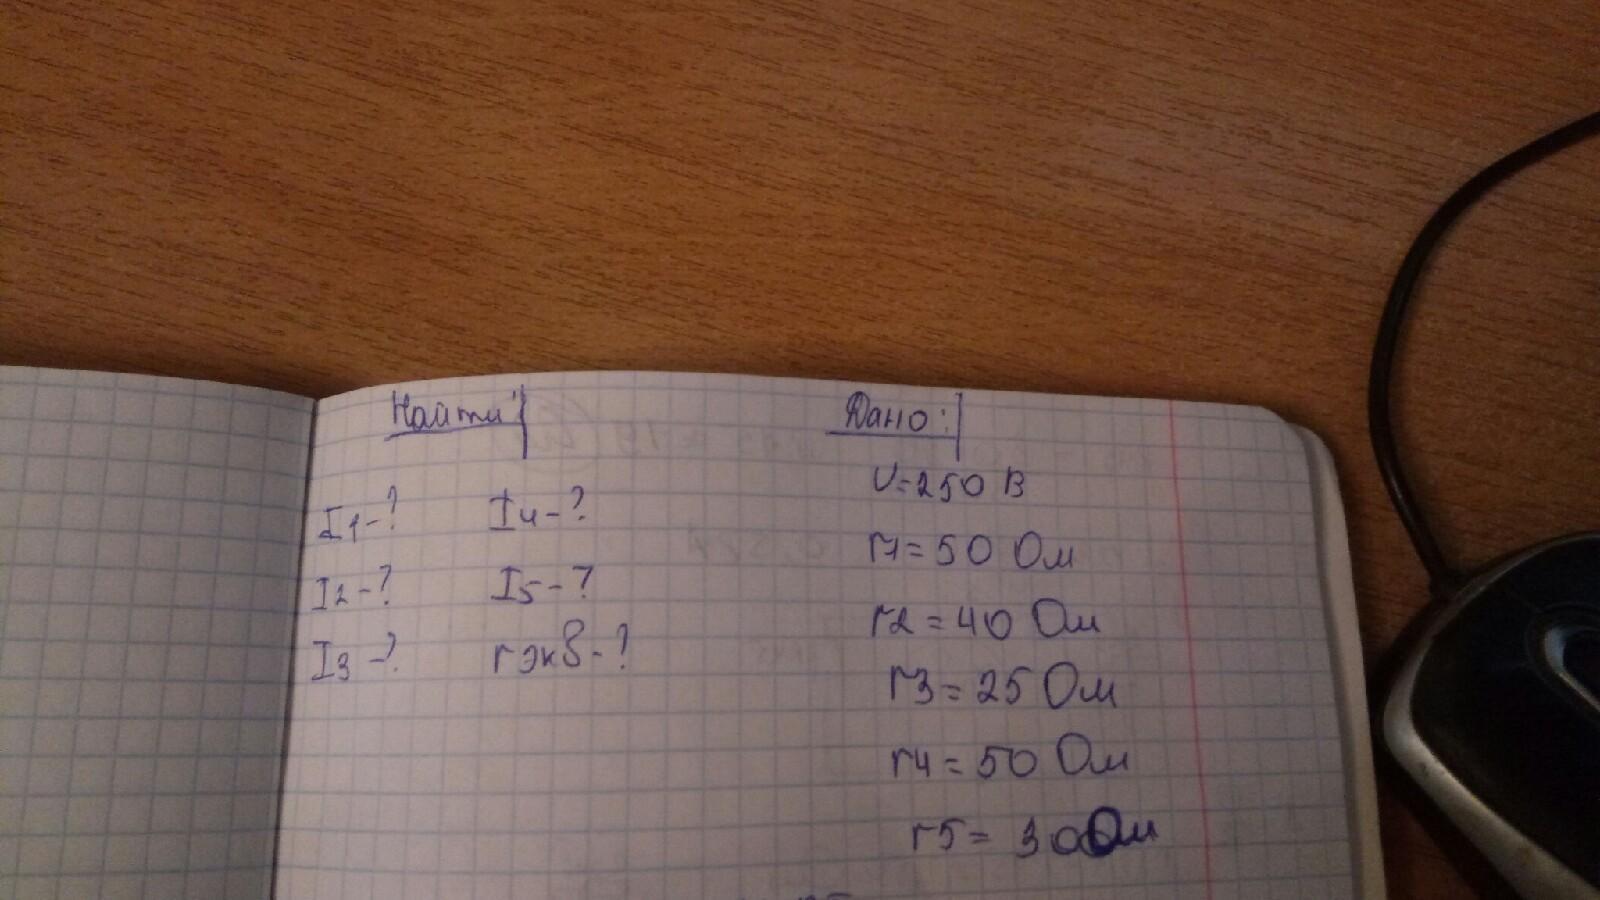 Найти:
I1-? I4-?
I2-? I5-?
I3-? rэкв-?
Дано:
U=250 В
r1=50 Ом
r2=40 Ом
r3=25 Ом
r4=50 Ом
r5=30Ом